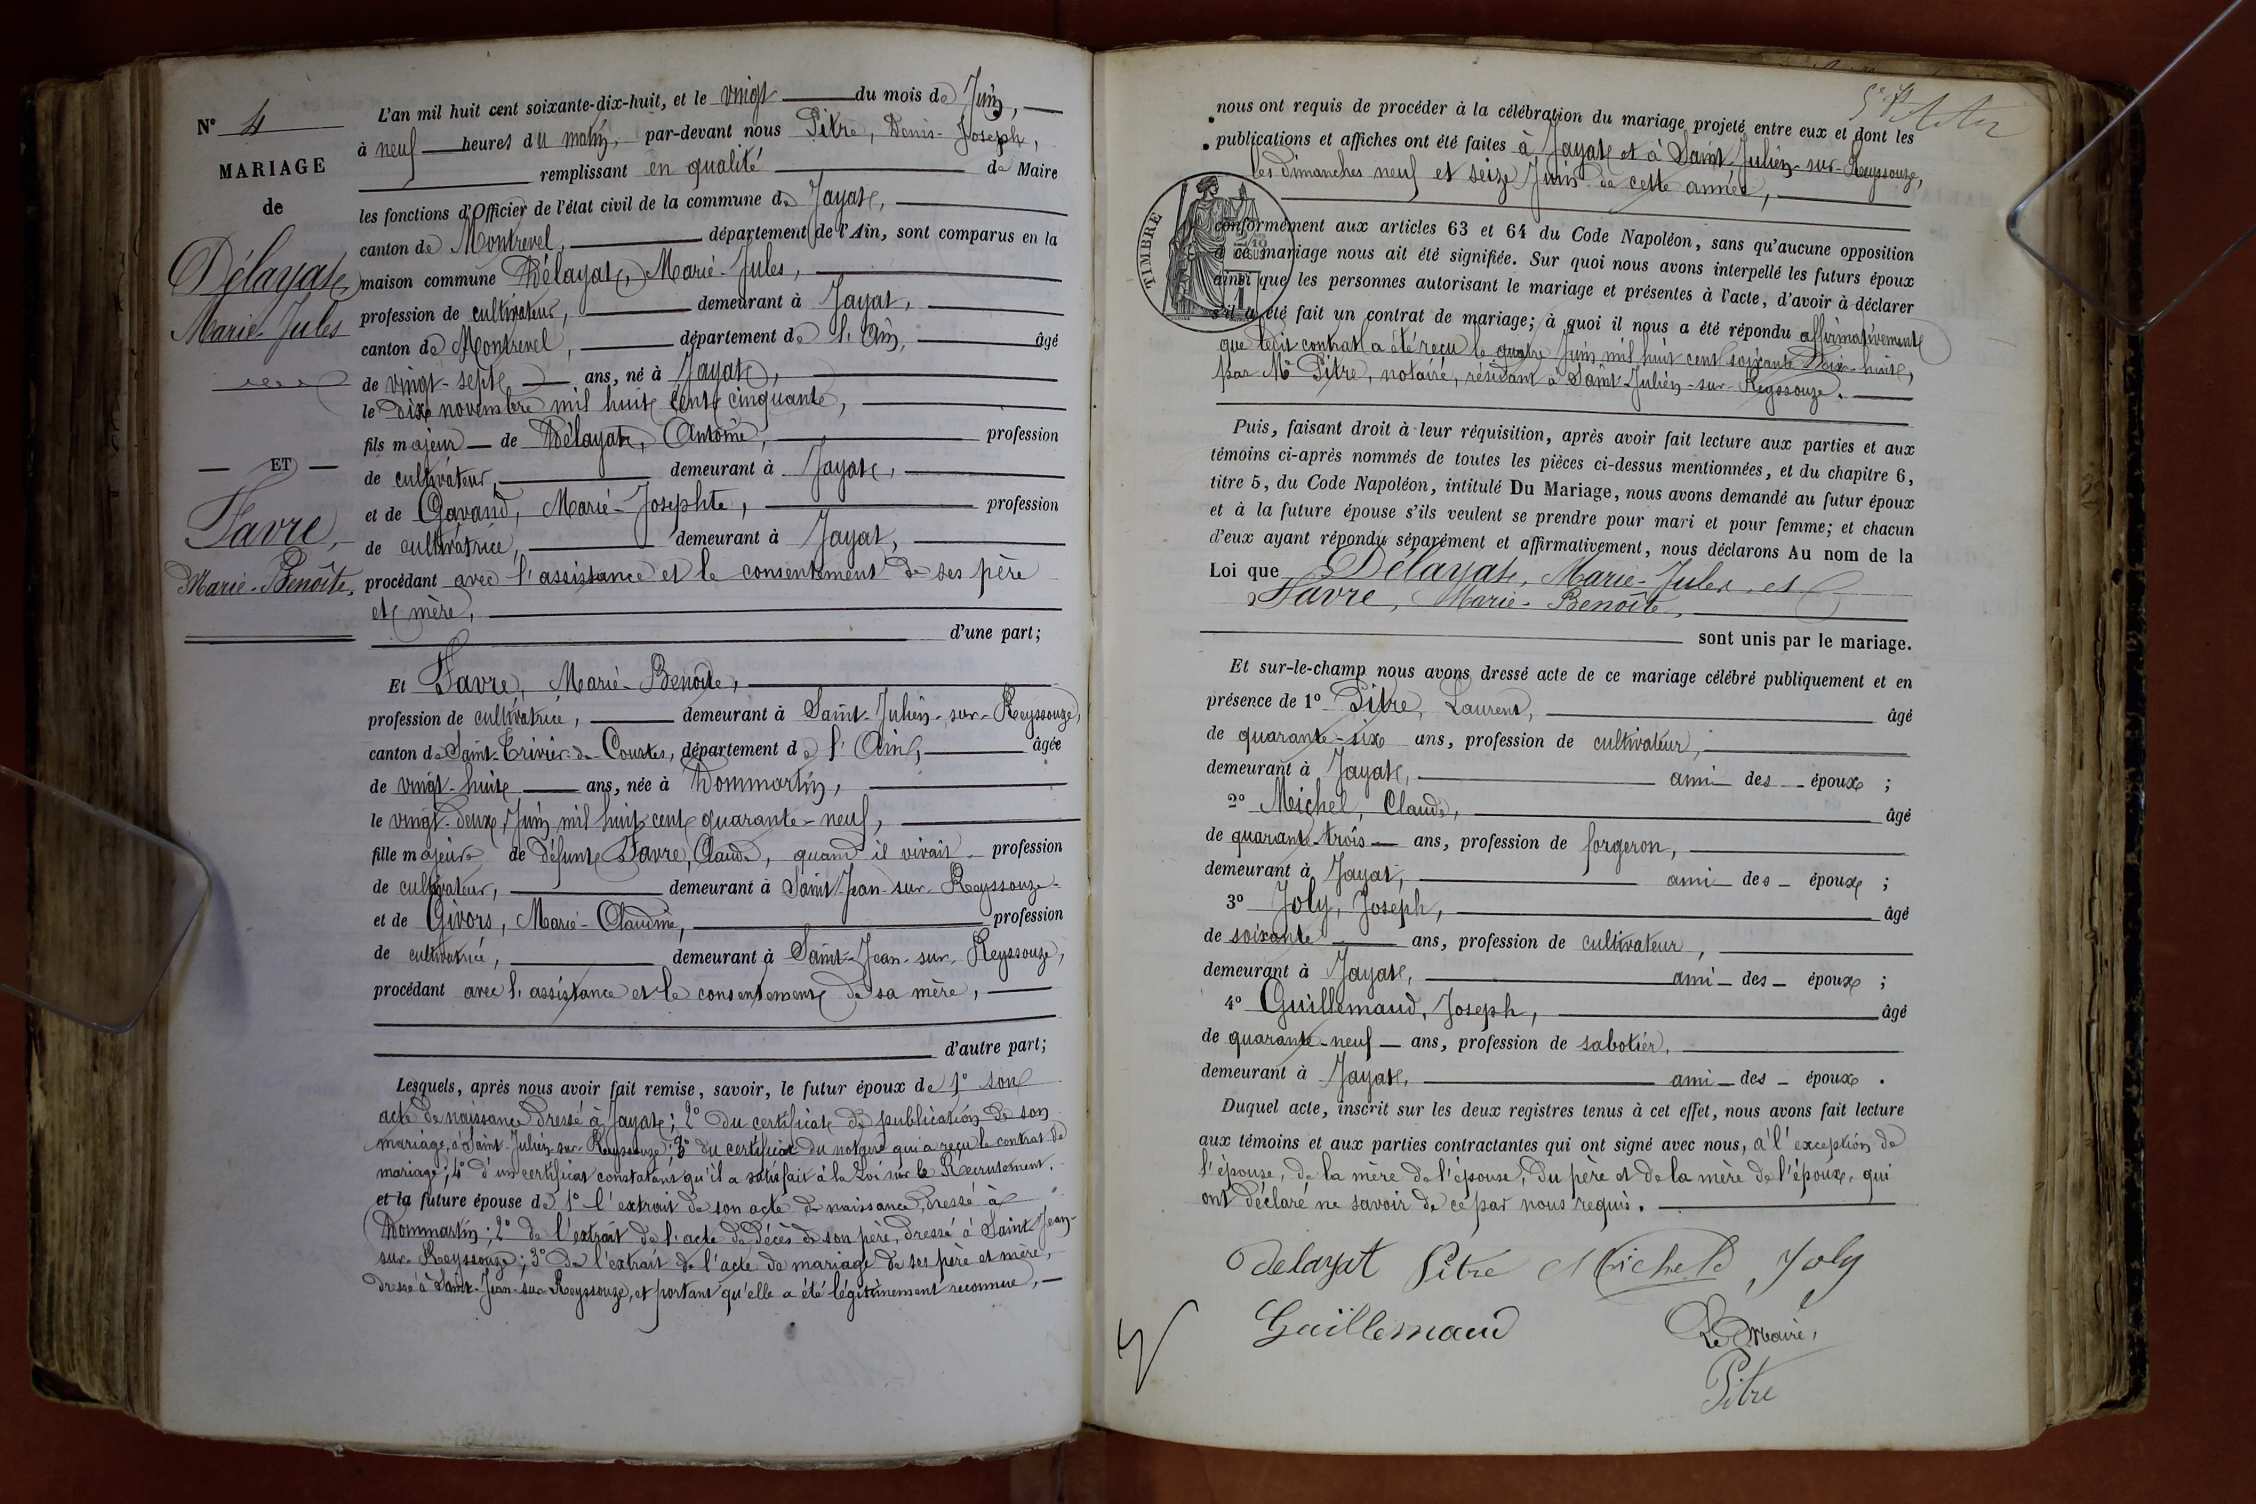 N° 4
MARIAGE
de
Délayat,
Marie-Jules
ET
Favre,
Marie-Benoîte,
L'an mil huit cent soixante-dix-huit, et le vingt du mois de Juin,
à neuf heures du matin, par-devant nous Pitre, Denis-Joseph,
remplissant en qualité de Maire
les fonctions d'Officier de l'état civil de la commune de Jayat,
canton de Montrevel, département de l'Ain, sont comparus en la
maison commune Délayat, Marie-Jules,
profession de cultivateur, demeurant à Jayat,
canton de Montrevel, département de l'Ain, âgé
de vingt-sept ans, né à Jayat,
le dix novembre mil huit cent cinquante,
fils majeur de Délayat, Antoine, profession
de cultivateur, demeurant à Jayat,
et de Gavand, Marie-Josephte, profession
de cultivatrice, demeurant à Jayat,
procédant avec l'assistance et le consentement de ses père
et mère,
d'une part;
Et Favre, Marie-Benoîte,
profession de cultivatrice, demeurant à Saint-Julien-sur-Reyssouze,
canton de Saint-Trivier-de-Courtes, département de l'Ain, âgée
de vingt-huit ans, née à Dommartin,
le vingt-deux Juin mil huit cent quarante-neuf,
fille majeure de défunt Favre, Claude, quand il vivait profession
de cultivateur, demeurant à Saint-Jean-sur-Reyssouze
et de Givors, Marie-Claudine, profession
de cultivatrice, demeurant à Saint-Jean-sur-Reyssouze,
procédant avec l'assistance et le consentement de sa mère,
d'autre part;
Lesquels, après nous avoir fait remise, savoir, le futur époux de 1° son
acte de naissance dressé à Jayat; 2° du certificat de publication de son
mariage, à Saint-Julien-sur-Reyssouze; 3° du certificat du notaire qui a reçu le contrat de
mariage; 4° d'un certificat constatant qu'il a satisfait à la Loi sur le Recrutement.
et la future épouse de 1° l'extrait de son acte de naissance, dressé à
Dommartin; 2° de l'extrait de l'acte de décès de son père, dressé à Saint-Jean-
sur-Reyssouze; 3° de l'extrait de l'acte de mariage de ses père et mère,
dressé à Saint-Jean-sur-Reyssouze, et portant qu'elle a été légitimement reconnue,
nous ont requis de procéder à la célébration du mariage projeté entre eux et dont les
publications et affiches ont été faites à Jayat et à Saint-Julien-sur-Reyssouze,
les dimanches neuf et seize Juin de cette année,
TIMBRE
conformément aux articles 63 et 64 du Code Napoléon, sans qu'aucune opposition
à ce mariage nous ait été signifiée. Sur quoi nous avons interpellé les futurs époux
ainsi que les personnes autorisant le mariage et présentes à l'acte, d'avoir à déclarer
s'il a été fait un contrat de mariage; à quoi il nous a été répondu affirmativement
que ledit contrat a été reçu le quatre Juin mil huit cent soixante-dix-huit,
par Me Pitre, notaire, résidant à Saint-Julien-sur-Reyssouze.
Puis, faisant droit à leur réquisition, après avoir fait lecture aux parties et aux
témoins ci-après nommés de toutes les pièces ci-dessus mentionnées, et du chapitre 6,
titre 5, du Code Napoléon, intitulé Du Mariage, nous avons demandé au futur époux
et à la future épouse s'ils veulent se prendre pour mari et pour femme; et chacun
d'eux ayant répondu séparément et affirmativement, nous déclarons Au nom de la
Loi que Délayat, Marie-Jules, et
Favre, Marie-Benoîte,
sont unis par le mariage.
Et sur-le-champ nous avons dressé acte de ce mariage célébré publiquement et en
présence de 1° Pitre, Laurent, âgé
de quarante-six ans, profession de cultivateur,
demeurant à Jayat, ami des époux ;
2° Michel, Claude, âgé
de quarante-trois ans, profession de forgeron,
demeurant à Jayat, ami des époux ;
3° Joly, Joseph, âgé
de soixante ans, profession de cultivateur,
demeurant à Jayat, ami des époux ;
4° Guillemaud, Joseph, âgé
de quarante-neuf ans, profession de sabotier,
demeurant à Jayat, ami des époux.
Duquel acte, inscrit sur les deux registres tenus à cet effet, nous avons fait lecture
aux témoins et aux parties contractantes qui ont signé avec nous, à l'exception de
l'épouse, de la mère de l'épouse, du père et de la mère de l'époux, qui
ont déclaré ne savoir de ce par nous requis.
Delayat Pitre Michel Joly
Guillemaud
Le Maire,
Pitre